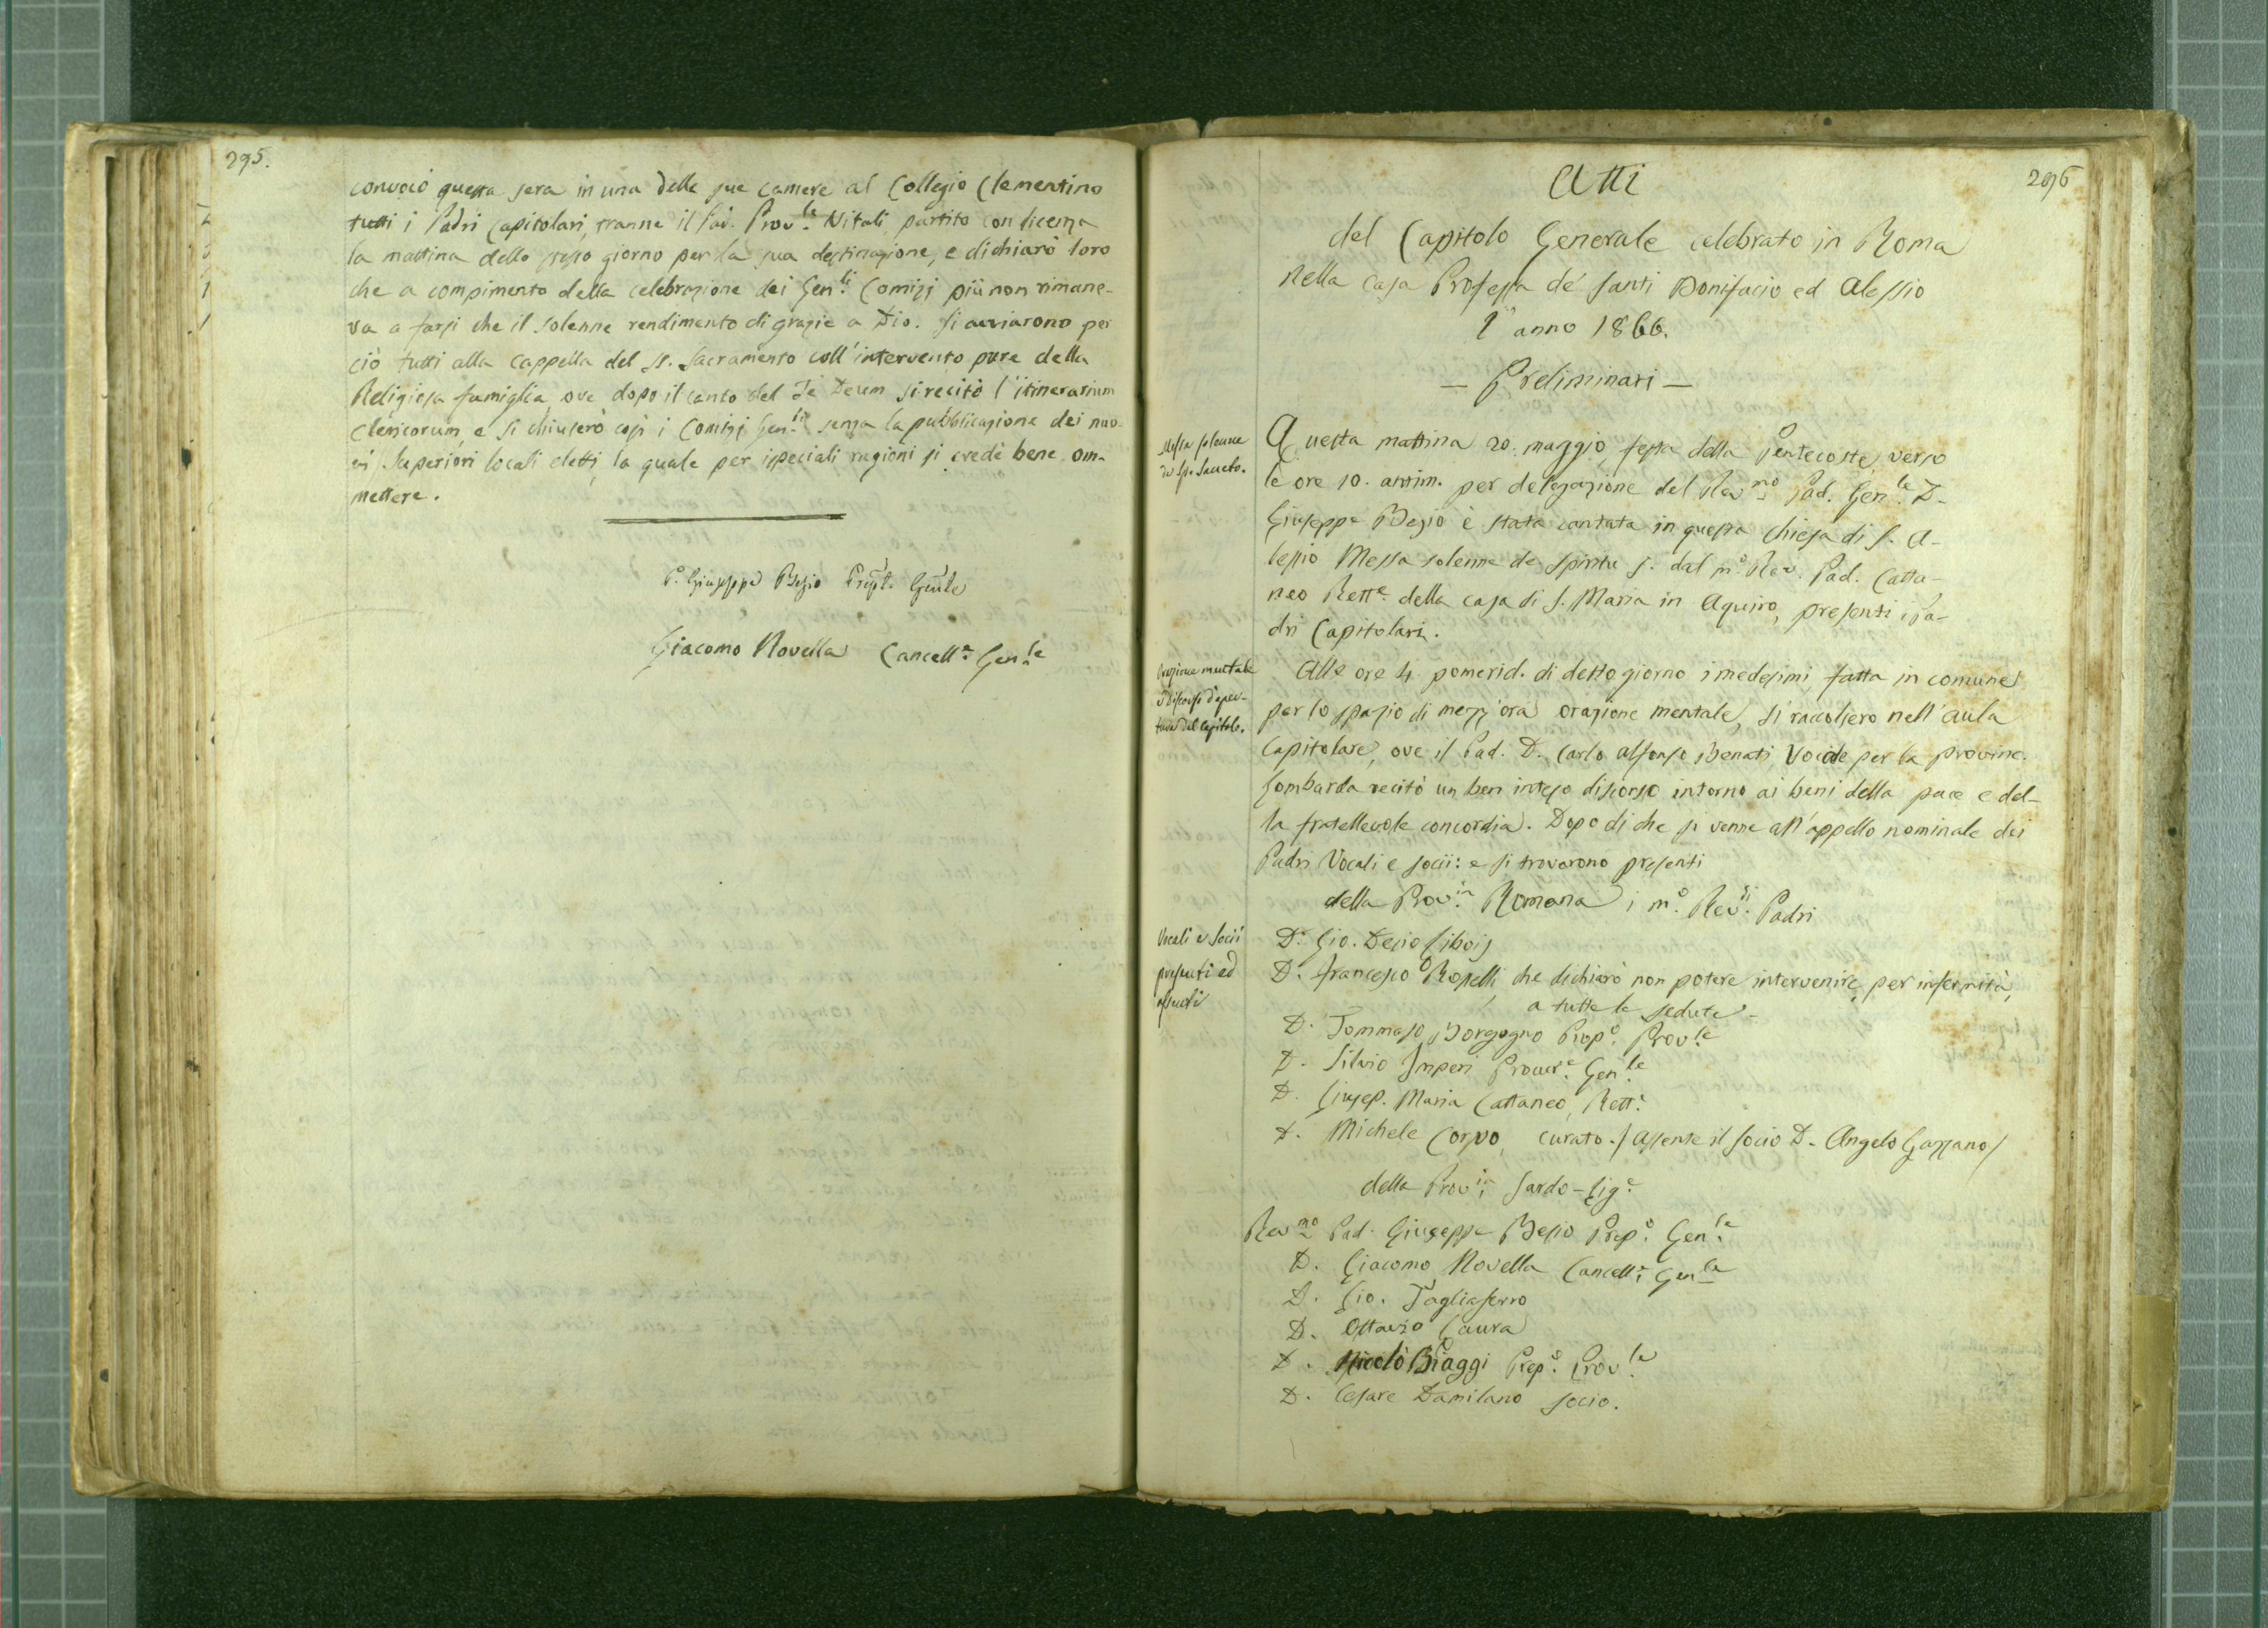 295.
convocò questa sera in una delle sue camere al Collegio Clementino
tutti i Padri Capitolari, tranne il Pad. Prov.le Nitali, partito con licenza
la mattina dello stesso giorno per la sua destinazione, e dichiarò loro
che a compimento della celebrazione dei Gen.li Comizj più non rimane-
va a farsi che il solenne rendimento di grazie a Dio. Si avviarono per
ciò tutti alla cappella del SS. Sacramento coll'intervento pure della
Religiosa famiglia, ove dopo il canto del Te Deum si recitò l'itinerarium
clericorum, e si chiusero così i Comizj Gen.li senza la pubblicazione dei nuo-
vi Superiori locali eletti, la quale per ispeciali ragioni si credè bene om-
mettere.
P. Giuseppe Besio Prep.to Gen.le
Giacomo Novella Cancell.e Gen.le
296
Atti
del Capitolo Generale celebrato in Roma
nella casa Professa de' Santi Bonifacio ed Alessio
l'anno 1866.
— Preliminari —
Messa solenne
de Sp. Sancto.
Questa mattina 20. maggio, festa della Pentecoste, verso
le ore 10. antim. per delegazione del Rev.mo Pad. Gen.le D.
Giuseppe Besio è stata cantata in questa Chiesa di S. A-
lessio Messa solenne de Spiritu S. dal m.o Rev. Pad. Catta-
neo Rett.e della casa di S. Maria in Aquiro, presenti i Pa-
dri Capitolari.
Orazione mentale
e Discorso d'aper-
tura del Capitolo.
Alle ore 4 pomerid. di detto giorno i medesimi, fatta in comune
per lo spazio di mezz'ora orazione mentale, si raccolsero nell'aula
Capitolare, ove il Pad. D. Carlo Alfonso Benati Vocale per la provinc.
Lombarda recitò un ben inteso discorso intorno ai beni della pace e del-
la fratellevole concordia. Dopo di che si venne all'appello nominale dei
Padri Vocali e socii: e si trovarono presenti
della Prov.ia Romana i m.o Rev.di Padri
Vocali e Socii
presenti ed
assenti
D. Gio. Decio Libois
D. Francesco Rosselli, che dichiarò non potere intervenire, per infermità,
a tutte le sedute -
D. Tommaso Borgogno Prep.o Prov.le
D. Silvio Imperi Procur.e Gen.le
D. Giusep. Maria Cattaneo, Rett.e
D. Michele Corvo, curato. / Assente il socio D. Angelo Gazzano /
della Prov.ia Sardo-Lig.e
Rev.mo Pad. Giuseppe Besio Prep.o Gen.le
D. Giacomo Novella Cancell.e Gen.le
D. Gio. Tagliaferro
D. Ottavio Caura
D. Nicolò Biaggi Prep.o Prov.le
D. Cesare Damilano socio.